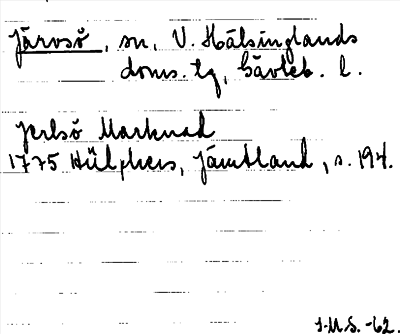 Järvsö, sn, V. Hälsinglands
doms. tg, Gävleb. l.
Jerlsö Marknad
1775 Hülphers, Jämtland, s. 194.
I.M.S. -62.